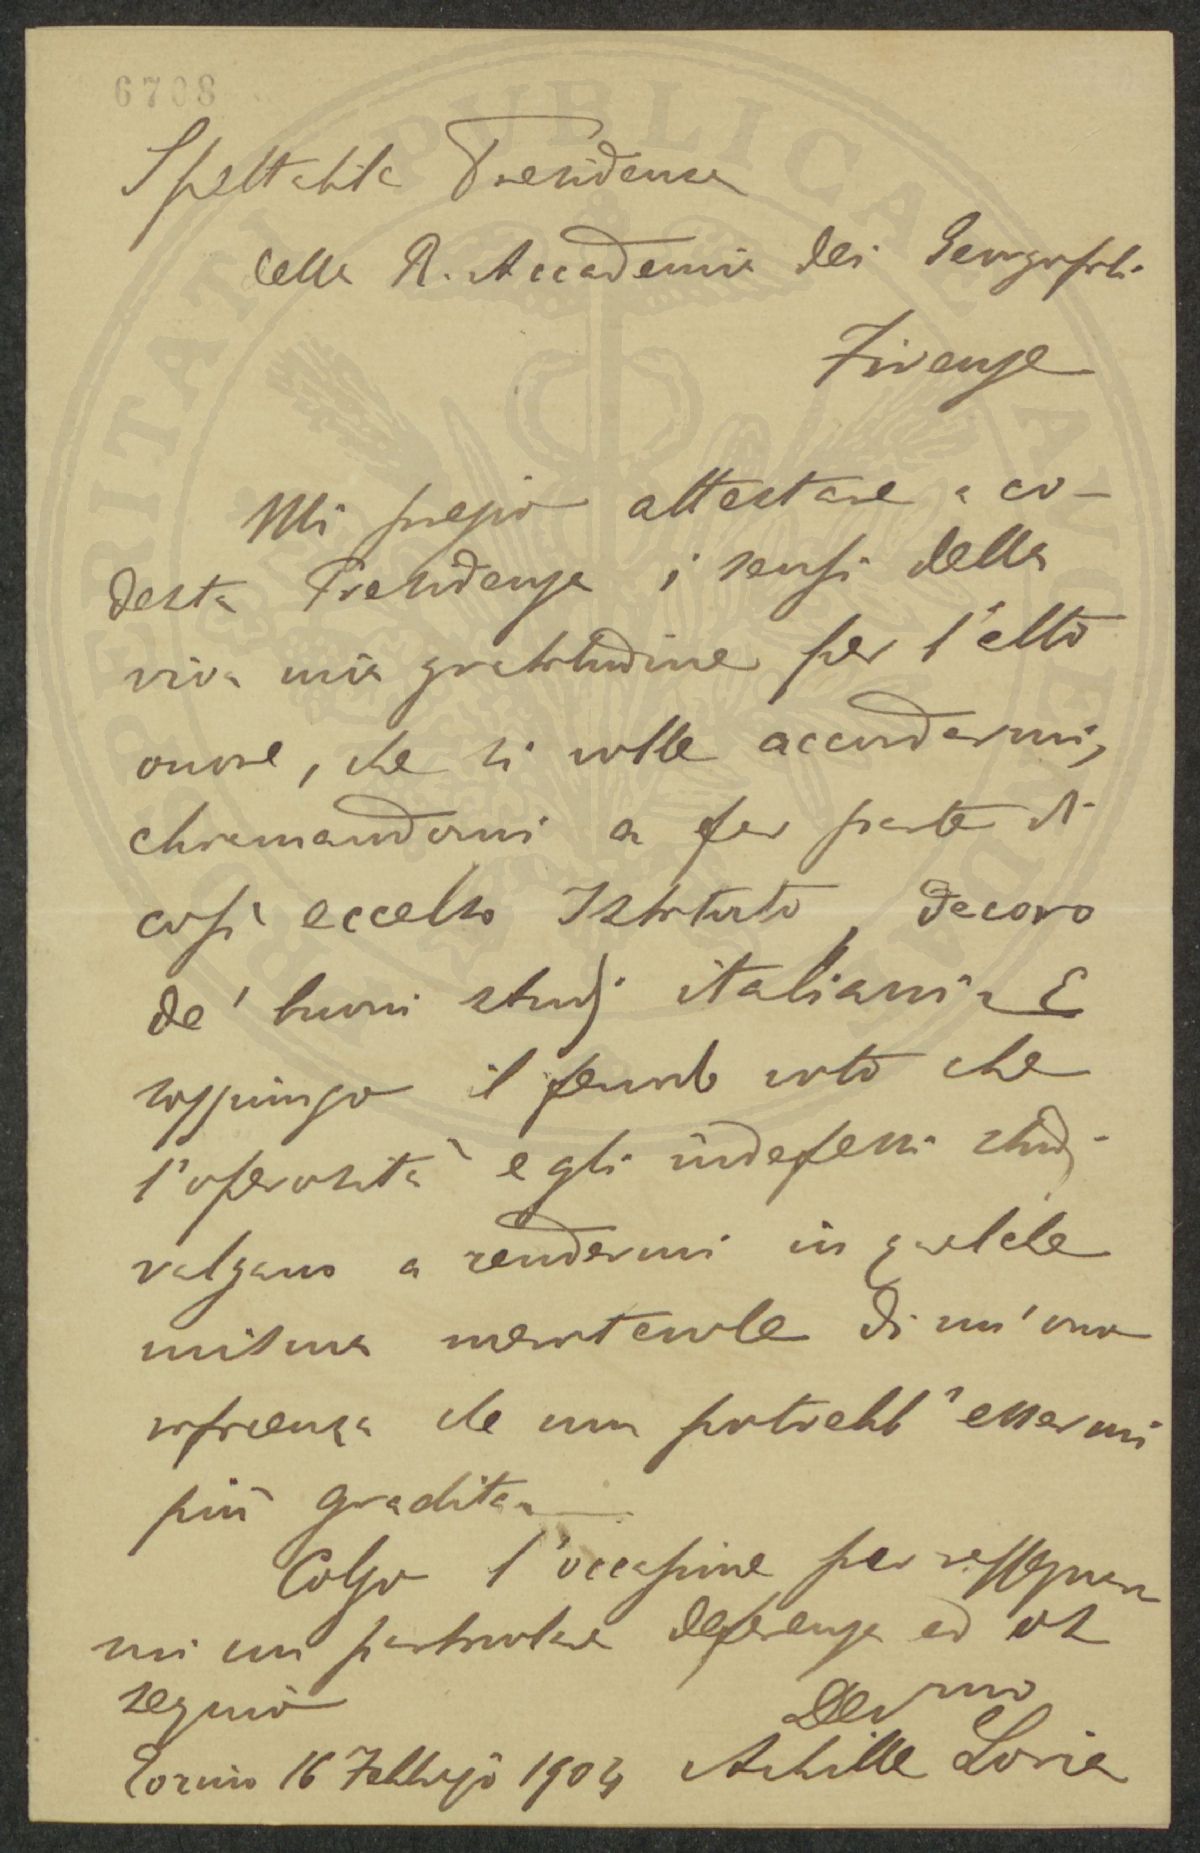 6708
Spettabile Presidenza
della R. Accademia dei Georgofili
Firenze
Mi pregio attestare a co-
desta Presidenza i sensi della
viva mia gratitudine per l'alto
onore, che si volle accordarmi,
chiamandomi a far parte di
così eccelso Istituto, decoro
de' buoni studj italiani. E
soggiungo il fervido voto che
l'operosità e gli indefessi studj
valgano a rendermi in qualche
misura meritevole di un'ono
rificenza che non potrebb'essermi
più gradita.
Colgo l'occasione per rassegnar
mi con particolare deferenza ed os
sequio
Devmo
Torino 16 Febbrajo 1904 Achille Loria
PROSPERITATI PUBLICAE AUGENDAE